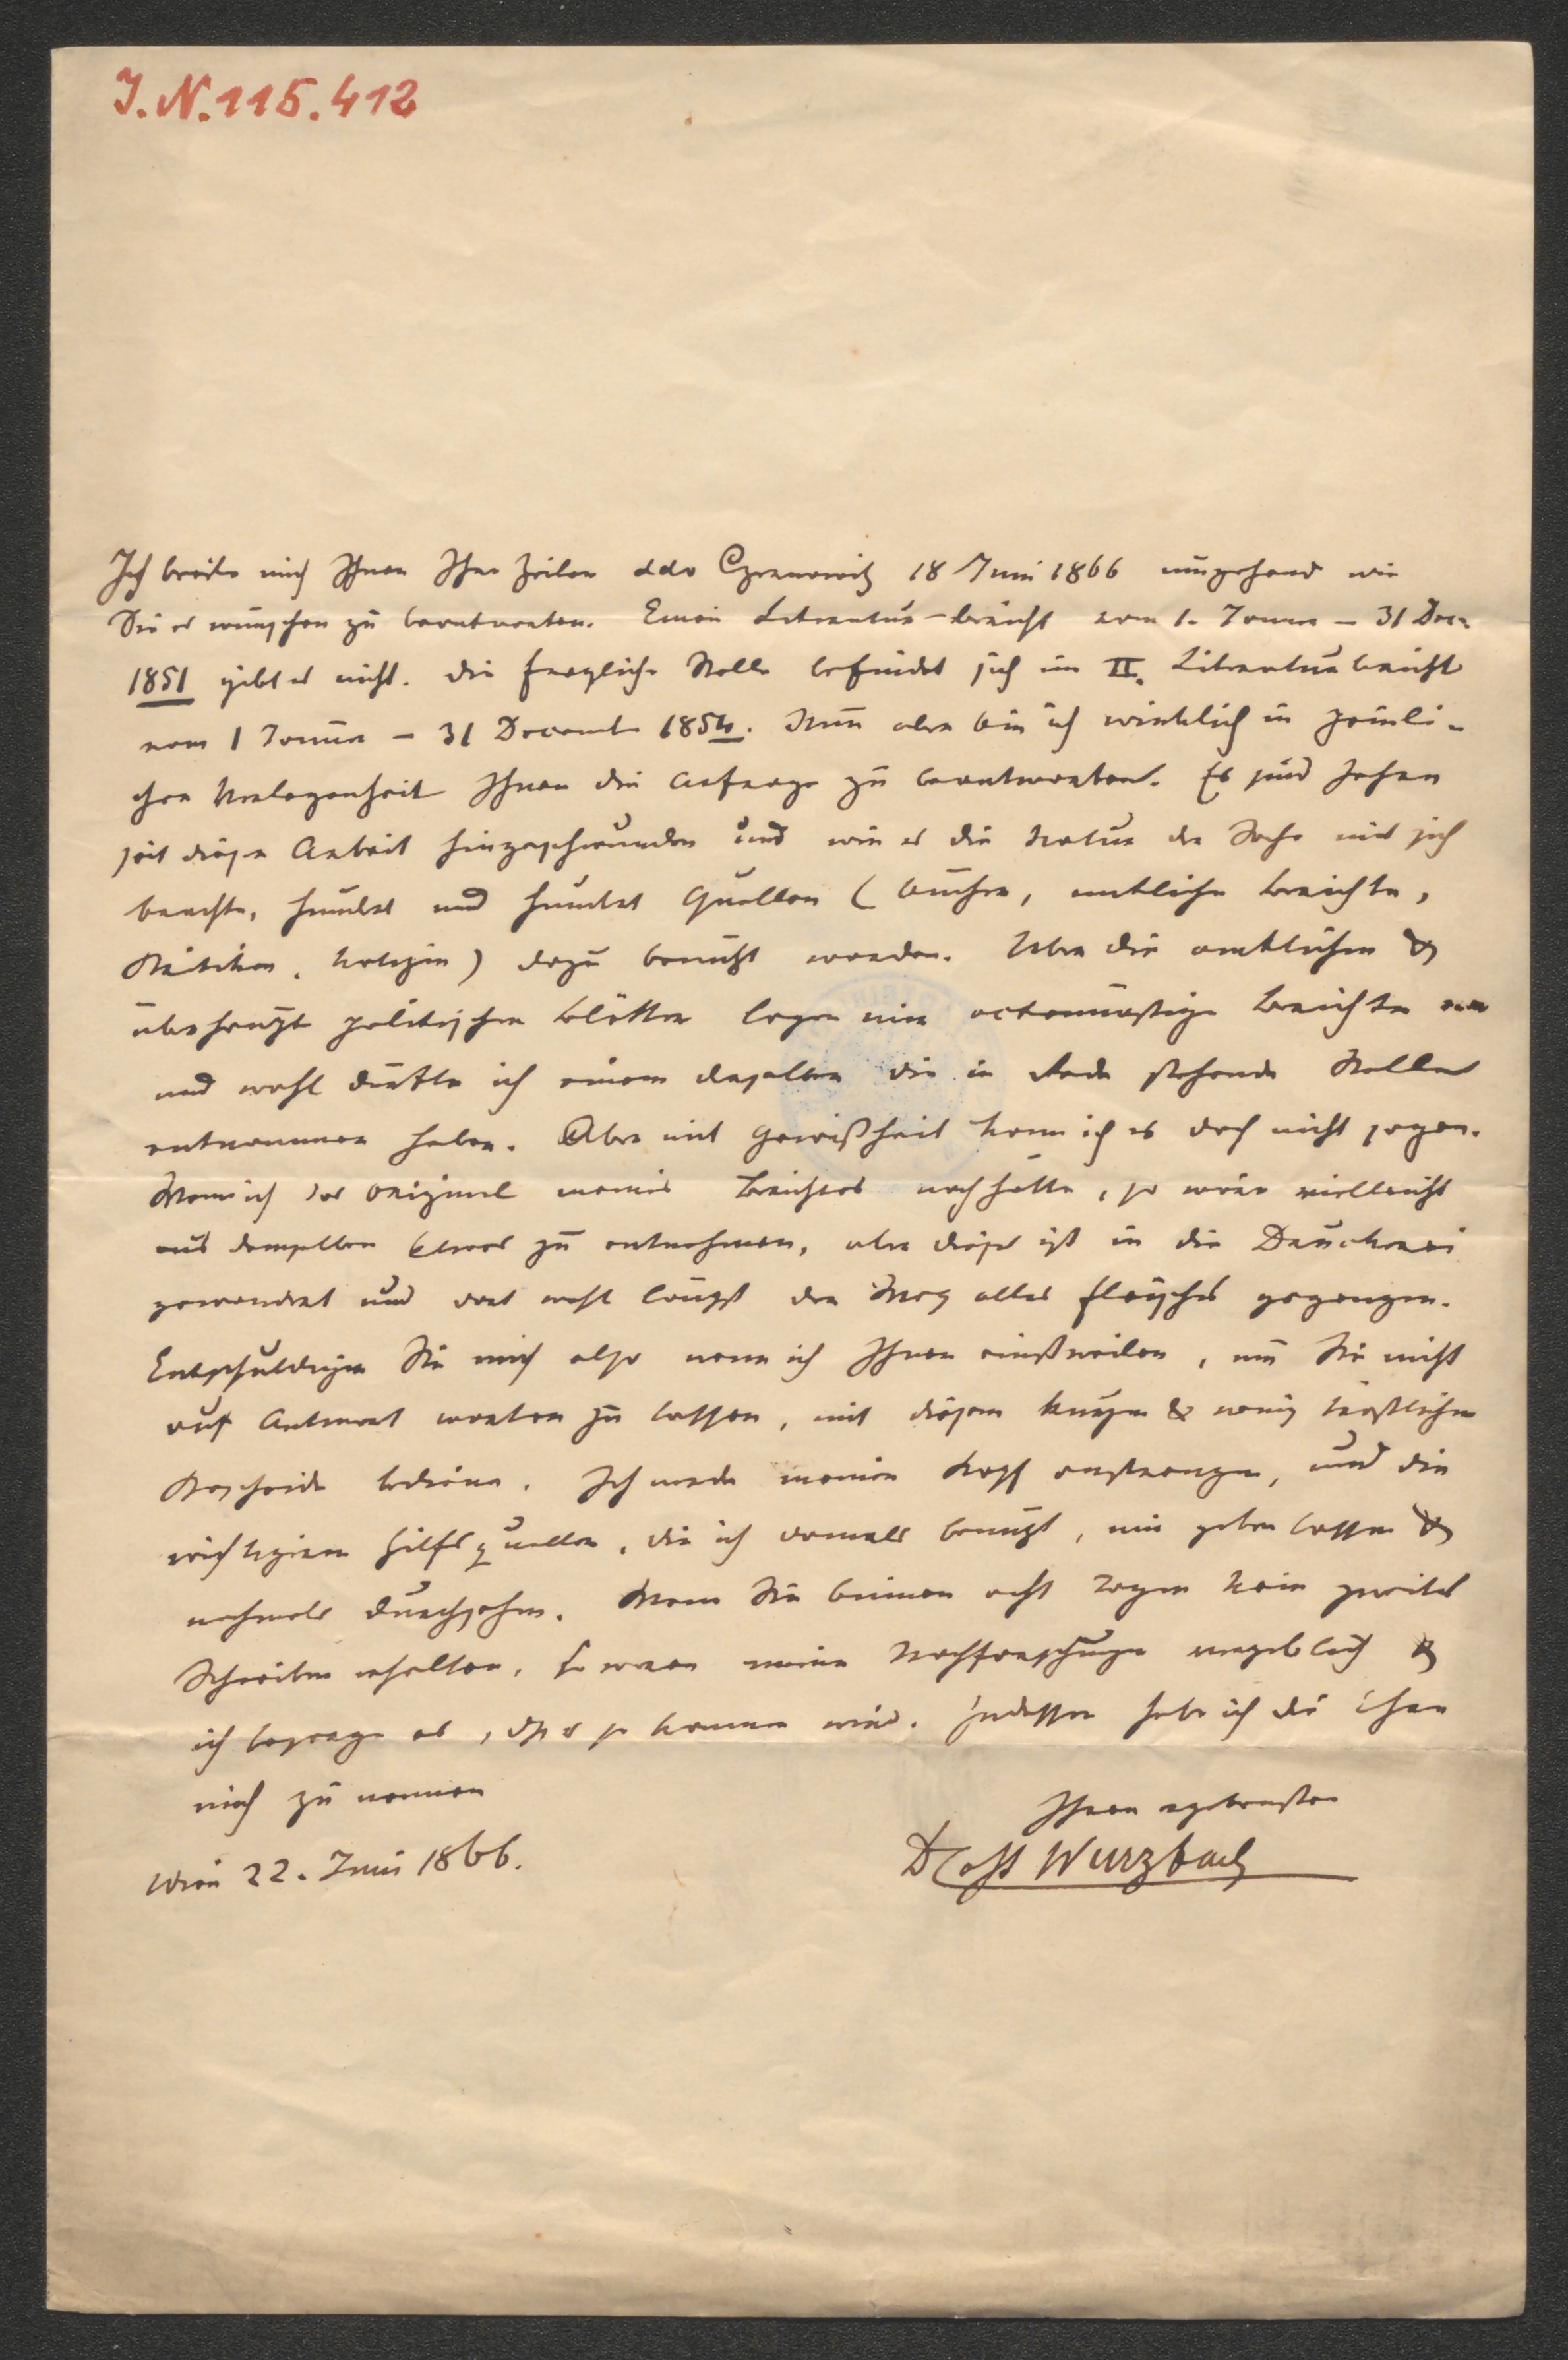 I.N.115.412
Ich beeile mich Ihnen Ihre Zeilen ddo Czernowitz 18 Juni 1866 umgehend wie
Sie es wünschen zu beantworten. Einen Literatur-bericht vom 1. Januar – 31 Dec.
1851 gibt es nicht. Die fragliche Stelle befindet sich im II. Literaturbericht
vom 1 Januar – 31 December 1854. Nun aber bin ich wirklich in peinli-
cher Verlegenheit Ihnen die Anfrage zu beantworten. Es sind Jahre
seit dieser Arbeit hingeschwunden und wie es die Natur der Sache mit sich
brachte, hundert und hundert Quellen (Bücher, amtliche Berichte,
Kritiken, Notizen) dazu benützt worden. Über die amtlichen &
überhaupt politischen Blätter lagen mir actenmäßige Berichte vor
und wohl dürfte ich einem derselben die in Rede stehende Stelle
entnommen haben. Aber mit Gewißheit kann ich es doch nicht sagen.
Wenn ich das Original meines Berichtes noch hätte, so wäre vielleicht
aus demselben Etwas zu entnehmen, aber dieses ist in die Druckerei
gewandert und dort wohl längst den Weg alles Fleisches gegangen.
Entschuldigen Sie mich also wenn ich Ihnen einstweilen, um Sie nicht
auf Antwort warten zu lassen, mit diesem kurzen & wenig tröstlichen
Bescheide bediene. Ich werde meinen Kopf anstrengen, und die
wichtigeren Hilfsquellen, die ich damals benützt, mir geben lassen &
nochmals durchsehen. Wenn Sie binnen acht Tagen kein zweites
Schreiben erhalten, so waren meine Nachforschungen vergeblich &
ich besorge es, daß es so kommen wird. Indessen habe ich die Ehre
mich zu nennen
Ihren ergebensten
Wien 22. Juni 1866.
D Cost Wurzbach